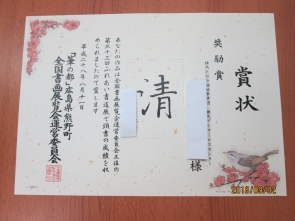 賞状
奨励賞
清
様
あなたの作品は全国書画展覧会運営委員会主催の
第五十三回ふれあい書道展で頭書の成績を収
められましたので賞します
平成二十八年八月十一日
「筆の都」広島県熊野町
全国書画展覧会運営委員会